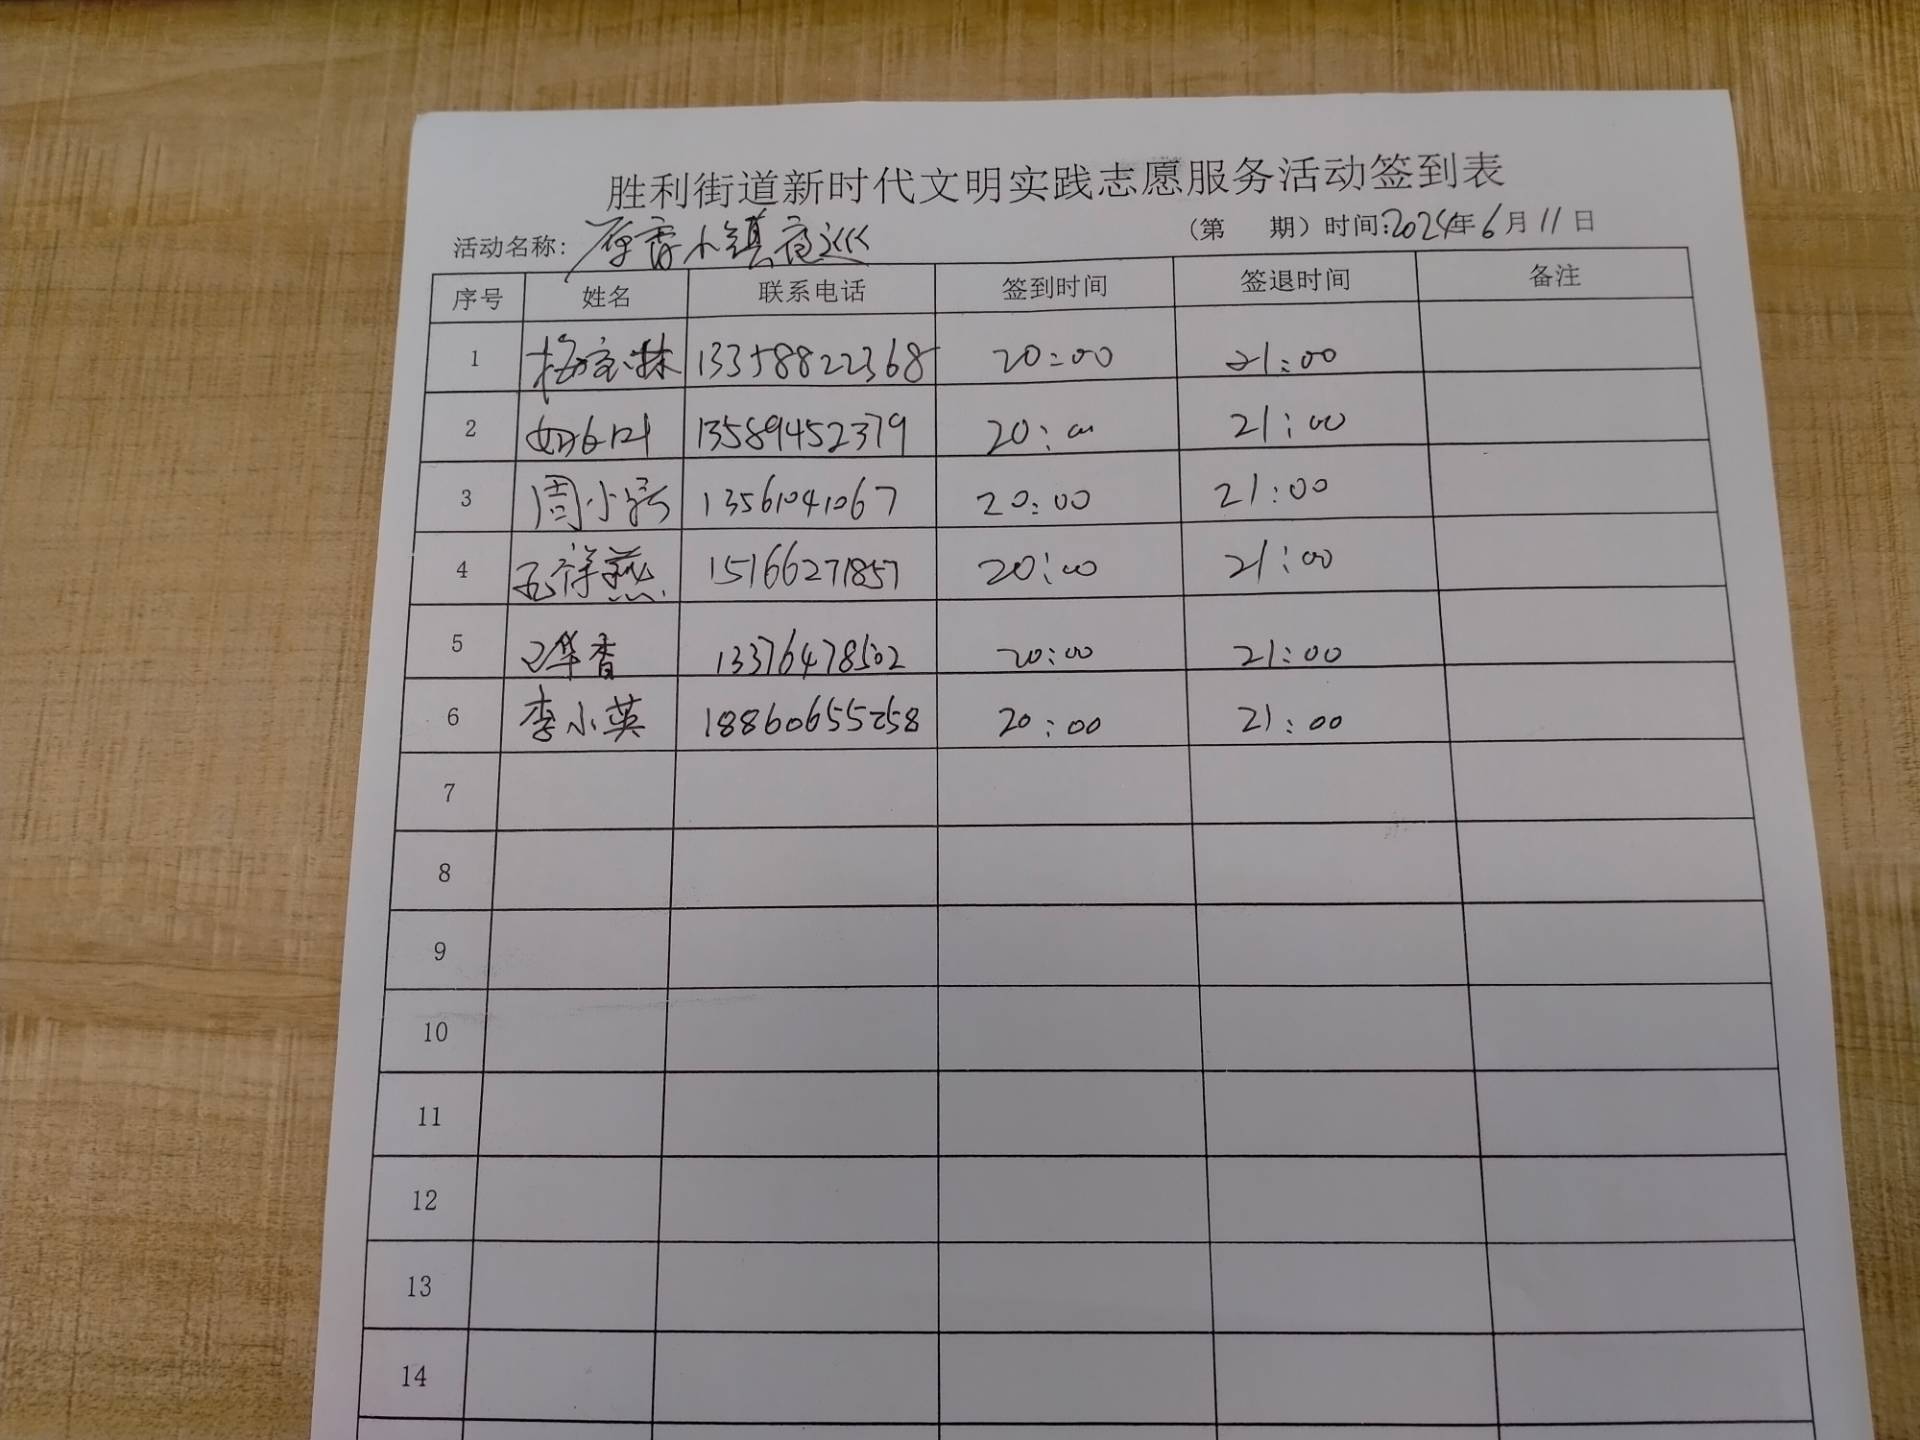 胜利街道新时代文明实践志愿服务活动签到表
活动名称: 小镇夜巡 (第 期) 时间:2024年6月11日
序号 姓名 联系电话 签到时间 签退时间 备注
1 13358822368 20:00 21:00
2 13589452379 20:00 21:00
3 周小 13561041067 20:00 21:00
4 祥燕 15166271857 20:00 21:00
5 华香 13376478502 20:00 21:00
6 李小英 18860655258 20:00 21:00
7
8
9
10
11
12
13
14